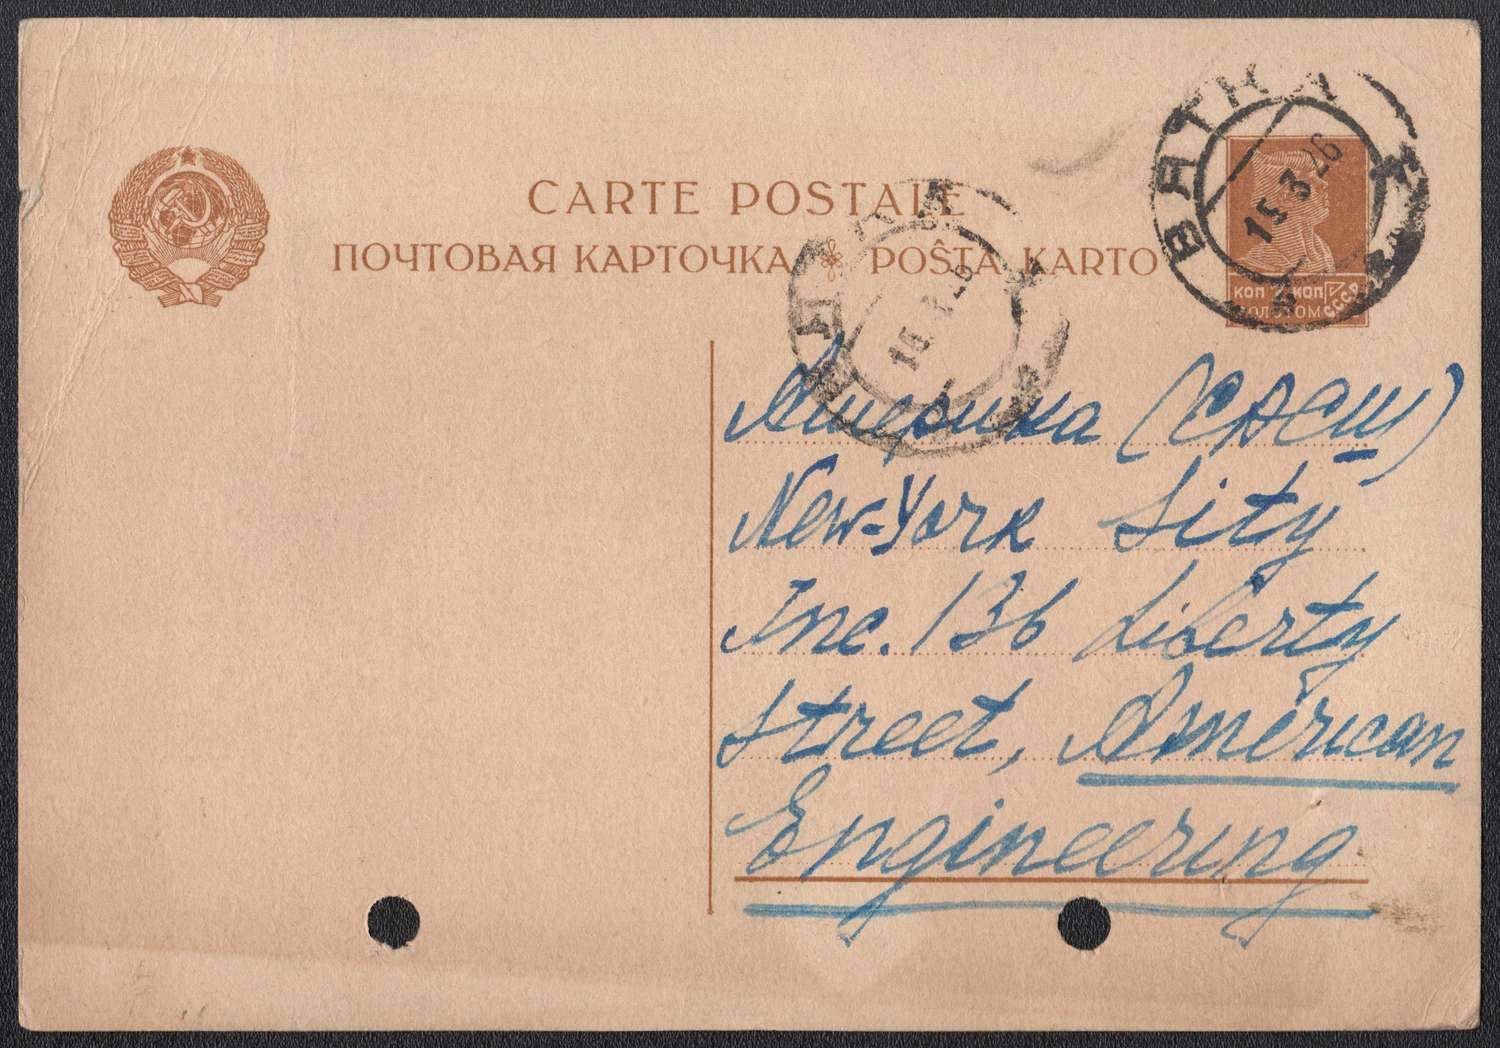 CARTE POSTALE
ПОЧТОВАЯ КАРТОЧКА POŜTA KARTO
ВЯТКА
15.3.26
КОП 7 КОП
ЗОЛОТОМ СССР
Америка (САСШ)
New-York Sity
Inc. 136 Liberty
Street, American
Engineering